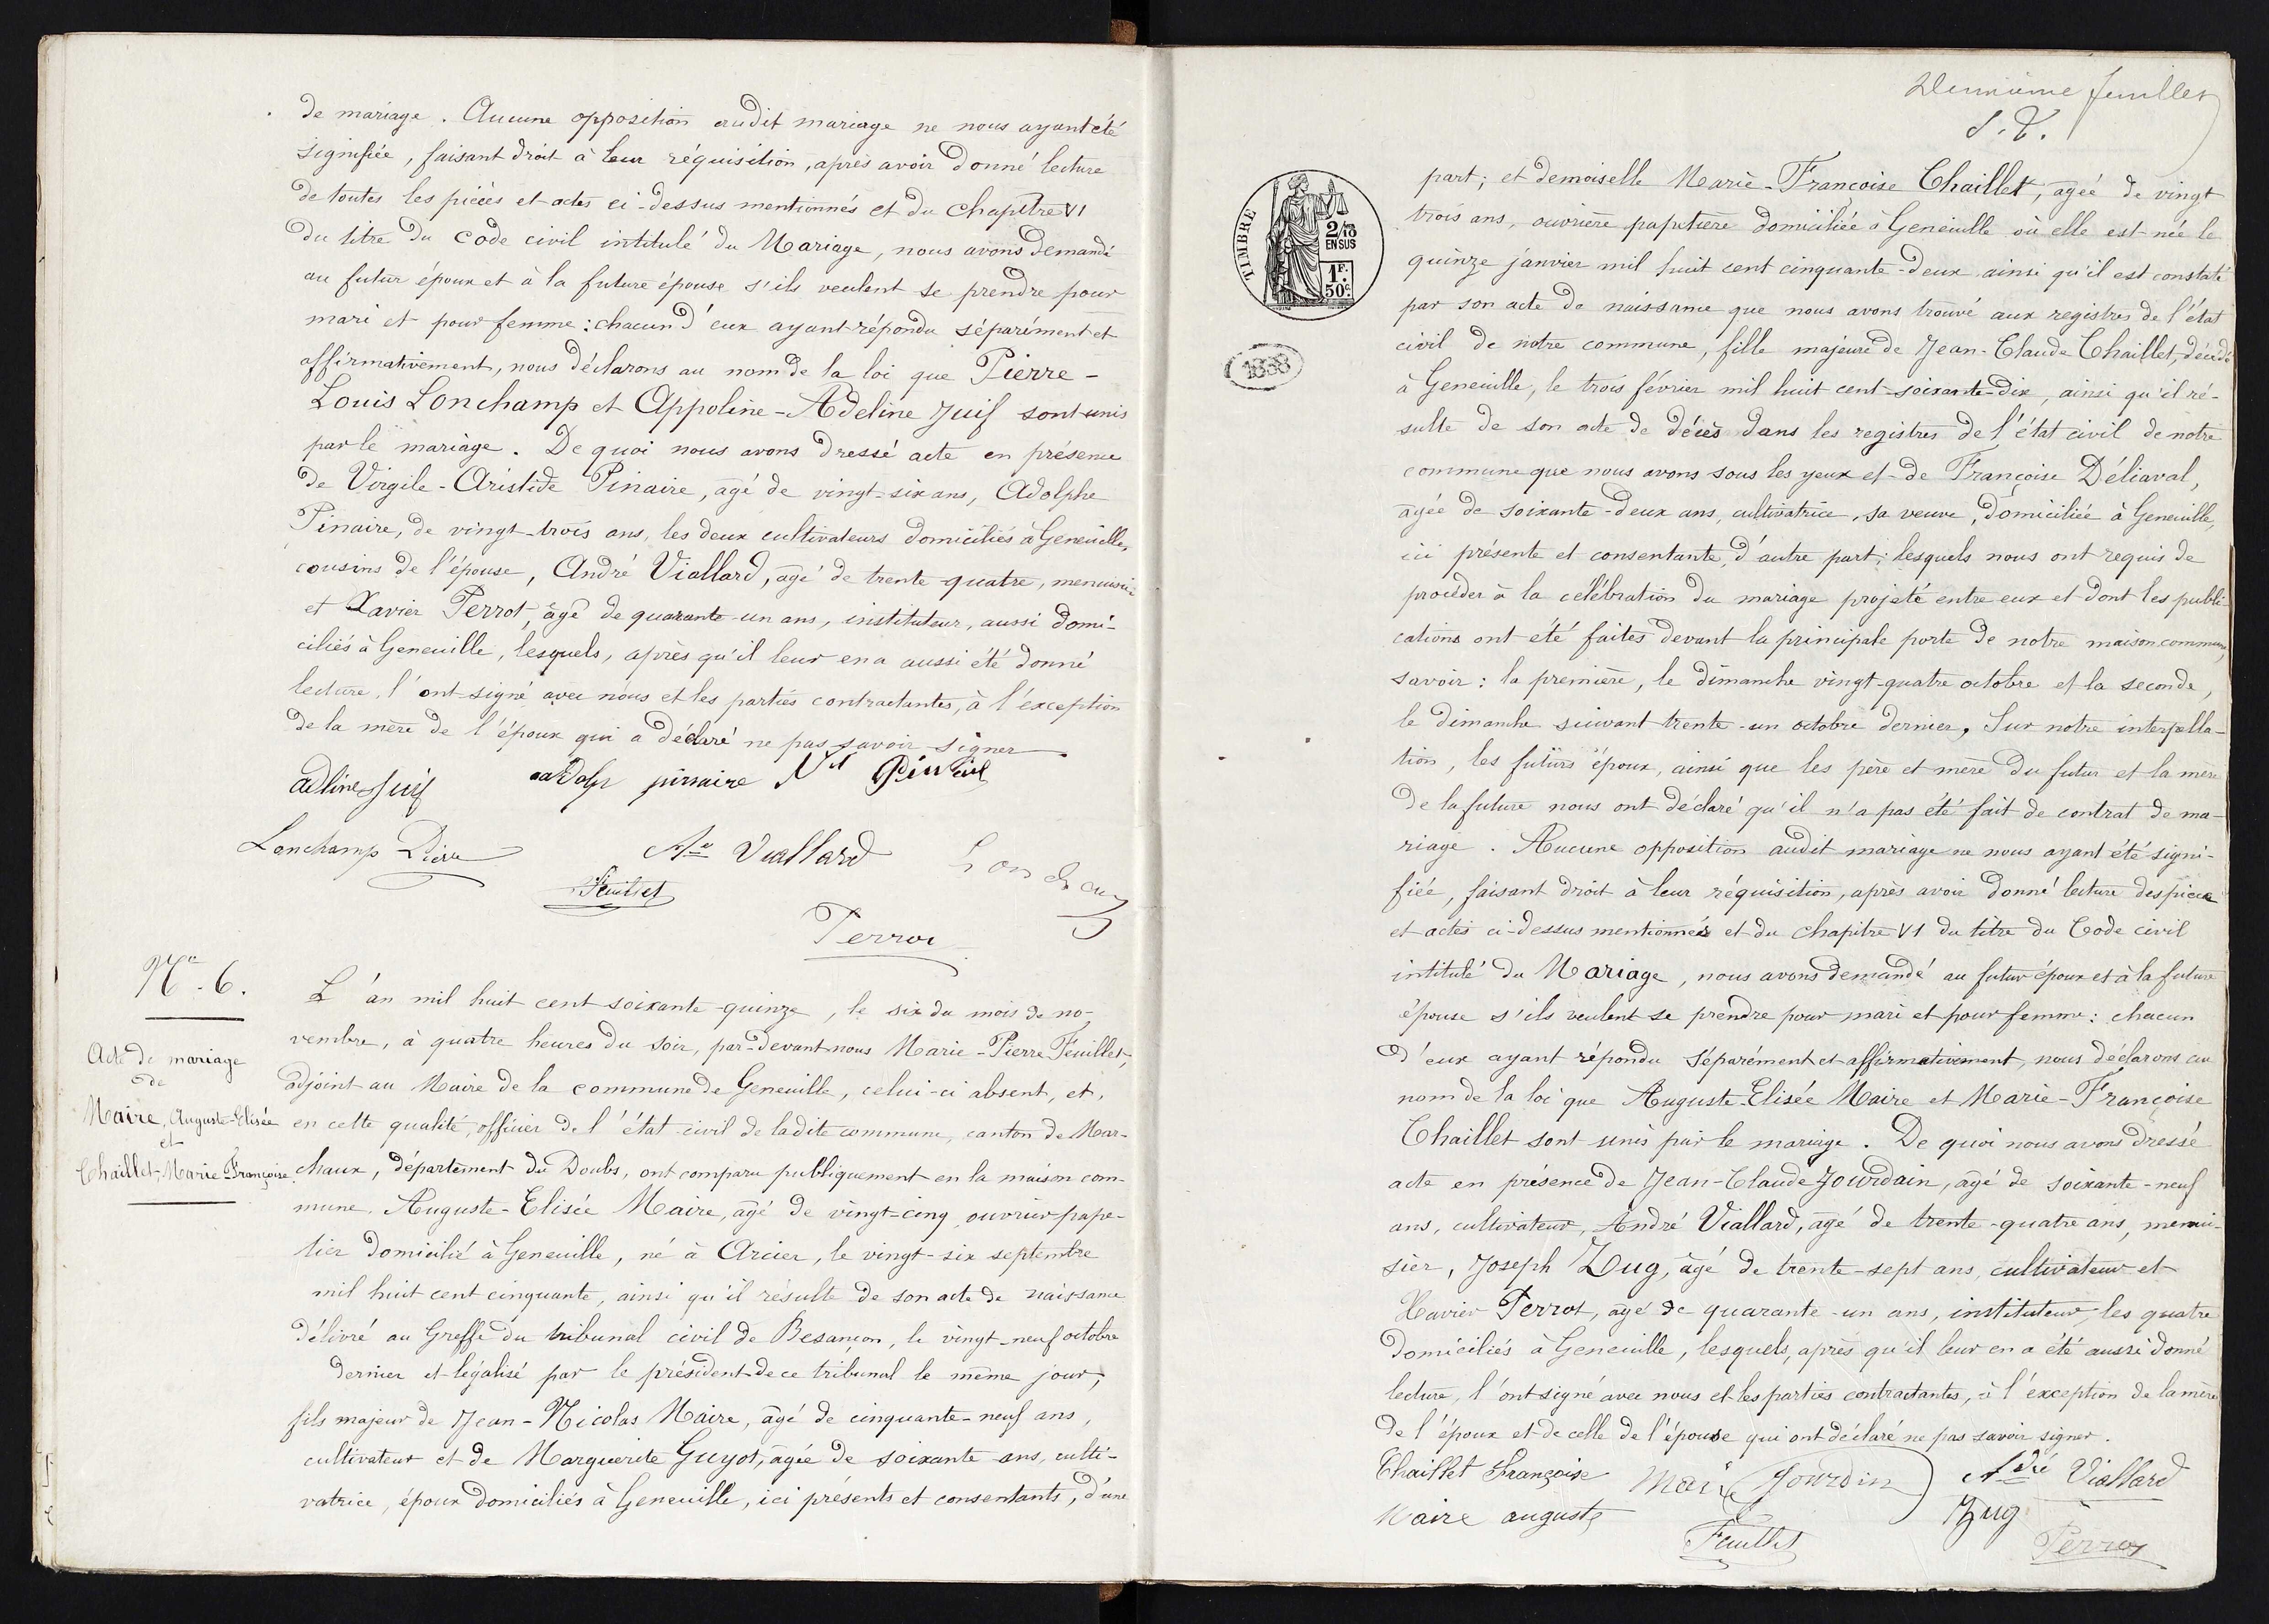 de mariage. Aucune opposition audit mariage ne nous ayant été
signifiée, faisant droit à leur réquisition, après avoir donné lecture
de toutes les pièces et actes ci-dessus mentionnés et du chapitre VI
du titre du code civil intitulé du Mariage, nous avons demandé
au futur époux et à la future épouse s'ils veulent se prendre pour
mari et pour femme: chacun d'eux ayant répondu séparément et
affirmativement, nous déclarons au nom de la loi que Pierre-
Louis Lonchamp et Appoline-Adeline Juif sont unis
par le mariage. De quoi nous avons dressé acte en présence
de Virgile-Aristide Pinaire, âgé de vingt-six ans, Adolphe
Pinaire, de vingt-trois ans, les deux cultivateurs domiciliés à Geneuille,
cousins de l'épouse, André Viallard, âgé de trente-quatre, menuisier
et Xavier Perrot, âgé de quarante-un ans, instituteur, aussi domi-
ciliés à Geneuille, lesquels, après qu'il leur en a aussi été donné
lecture, l'ont signé avec nous et les parties contractantes, à l'exception
de la mère de l'époux qui a déclaré ne pas savoir signer
adline Juif pinaire
Lonchamp Pierre Viallard
Feuillet
Perrot
No. 6.
Acte de mariage
de
Maire, Auguste-Elisée
et
Chaillet, Marie-Françoise.
L'an mil huit cent soixante-quinze, le six du mois de no-
vembre, à quatre heures du soir, par-devant nous Marie-Pierre Feuillet,
adjoint au Maire de la commune de Geneuille, celui-ci absent, et,
en cette qualité, officier de l'état civil de ladite commune, canton de Mar-
chaux, département du Doubs, ont comparu publiquement en la maison com-
mune, Auguste-Elisée Maire, âgé de vingt-cinq, ouvrier pape-
tier domicilié à Geneuille, né à Arcier, le vingt-six septembre
mil huit cent cinquante, ainsi qu'il résulte de son acte de naissance
délivré au Greffe du tribunal civil de Besançon, le vingt-neuf octobre
dernier et légalisé par le président de ce tribunal le même jour,
fils majeur de Jean-Nicolas Maire, âgé de cinquante-neuf ans,
cultivateur et de Marguerite Guyot, âgée de soixante ans, culti-
vatrice, époux domiciliés à Geneuille, ici présents et consentants, d'une
Deuxième feuillet
TIMBRE
2/10
EN SUS
1F.
50c.
1838
part; et demoiselle Marie-Françoise Chaillet, âgée de vingt
trois ans, ouvrière papetière domiciliée à Geneuille où elle est née le
quinze janvier mil huit cent cinquante-deux ainsi qu'il est constaté
par son acte de naissance que nous avons trouvé aux registres de l'état
civil de notre commune, fille majeure de Jean-Claude Chaillet, décédé
à Geneuille, le trois février mil huit cent-soixante-dix, ainsi qu'il ré-
sulte de son acte de décès dans les registres de l'état civil de notre
commune que nous avons sous les yeux et de Françoise Déliaval,
âgée de soixante-deux ans, cultivatrice, sa veuve, domiciliée à Geneuille,
ici présente et consentante, d'autre part; lesquels nous ont requis de
procéder à la célébration du mariage projeté entre eux et dont les publi-
cations ont été faites devant la principale porte de notre maison commune,
savoir: la première, le dimanche vingt-quatre octobre et la seconde,
le dimanche suivant trente-un octobre dernier. Sur notre interpella-
tion, les futurs époux, ainsi que les père et mère du futur et la mère
de la future nous ont déclaré qu'il n'a pas été fait de contrat de ma-
riage. Aucune opposition audit mariage ne nous ayant été signi-
fiée, faisant droit à leur réquisition, après avoir donné lecture des pièces
et actes ci-dessus mentionnés et du chapitre VI du titre du Code civil
intitulé du Mariage, nous avons demandé au futur époux et à la future
épouse s'ils veulent se prendre pour mari et pour femme: chacun
d'eux ayant répondu séparément et affirmativement, nous déclarons au
nom de la loi que Auguste-Elisée Maire et Marie-Françoise
Chaillet sont unis par le mariage. De quoi nous avons dressé
acte en présence de Jean-Claude Jourdain, âgé de soixante-neuf
ans, cultivateur, André Viallard, âgé de trente-quatre ans, menui-
sier, Joseph Zug, âgé de trente-sept ans, cultivateur et
Xavier Perrot, âgé de quarante-un ans, instituteur, les quatre
domiciliés à Geneuille, lesquels, après qu'il leur en a été aussi donné
lecture, l'ont signé avec nous et les parties contractantes, à l'exception de la mère
de l'époux et de celle de l'épouse qui ont déclaré ne pas savoir signer.
Chaillet Françoise Maire Jourdin Adré Viallard
Maire auguste Zug
Feuillet Perrot